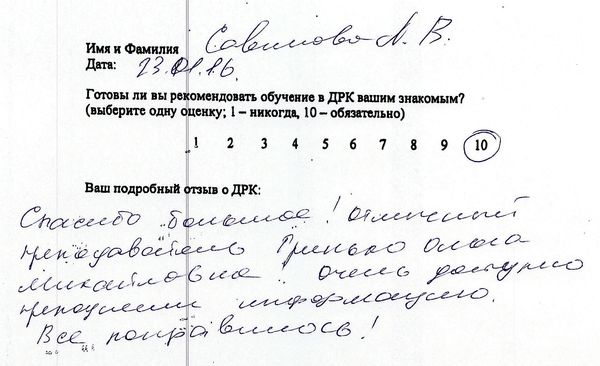 Имя и Фамилия Савилова А. В.
Дата: 23.01.16.
Готовы ли вы рекомендовать обучение в ДРК вашим знакомым?
(выберите одну оценку; 1 – никогда, 10 – обязательно)
1 2 3 4 5 6 7 8 9 10
Ваш подробный отзыв о ДРК:
Спасибо большое! Отличный
преподаватель Гринько Ольга
Михайловна очень доступно
информацию.
Все понравилось!